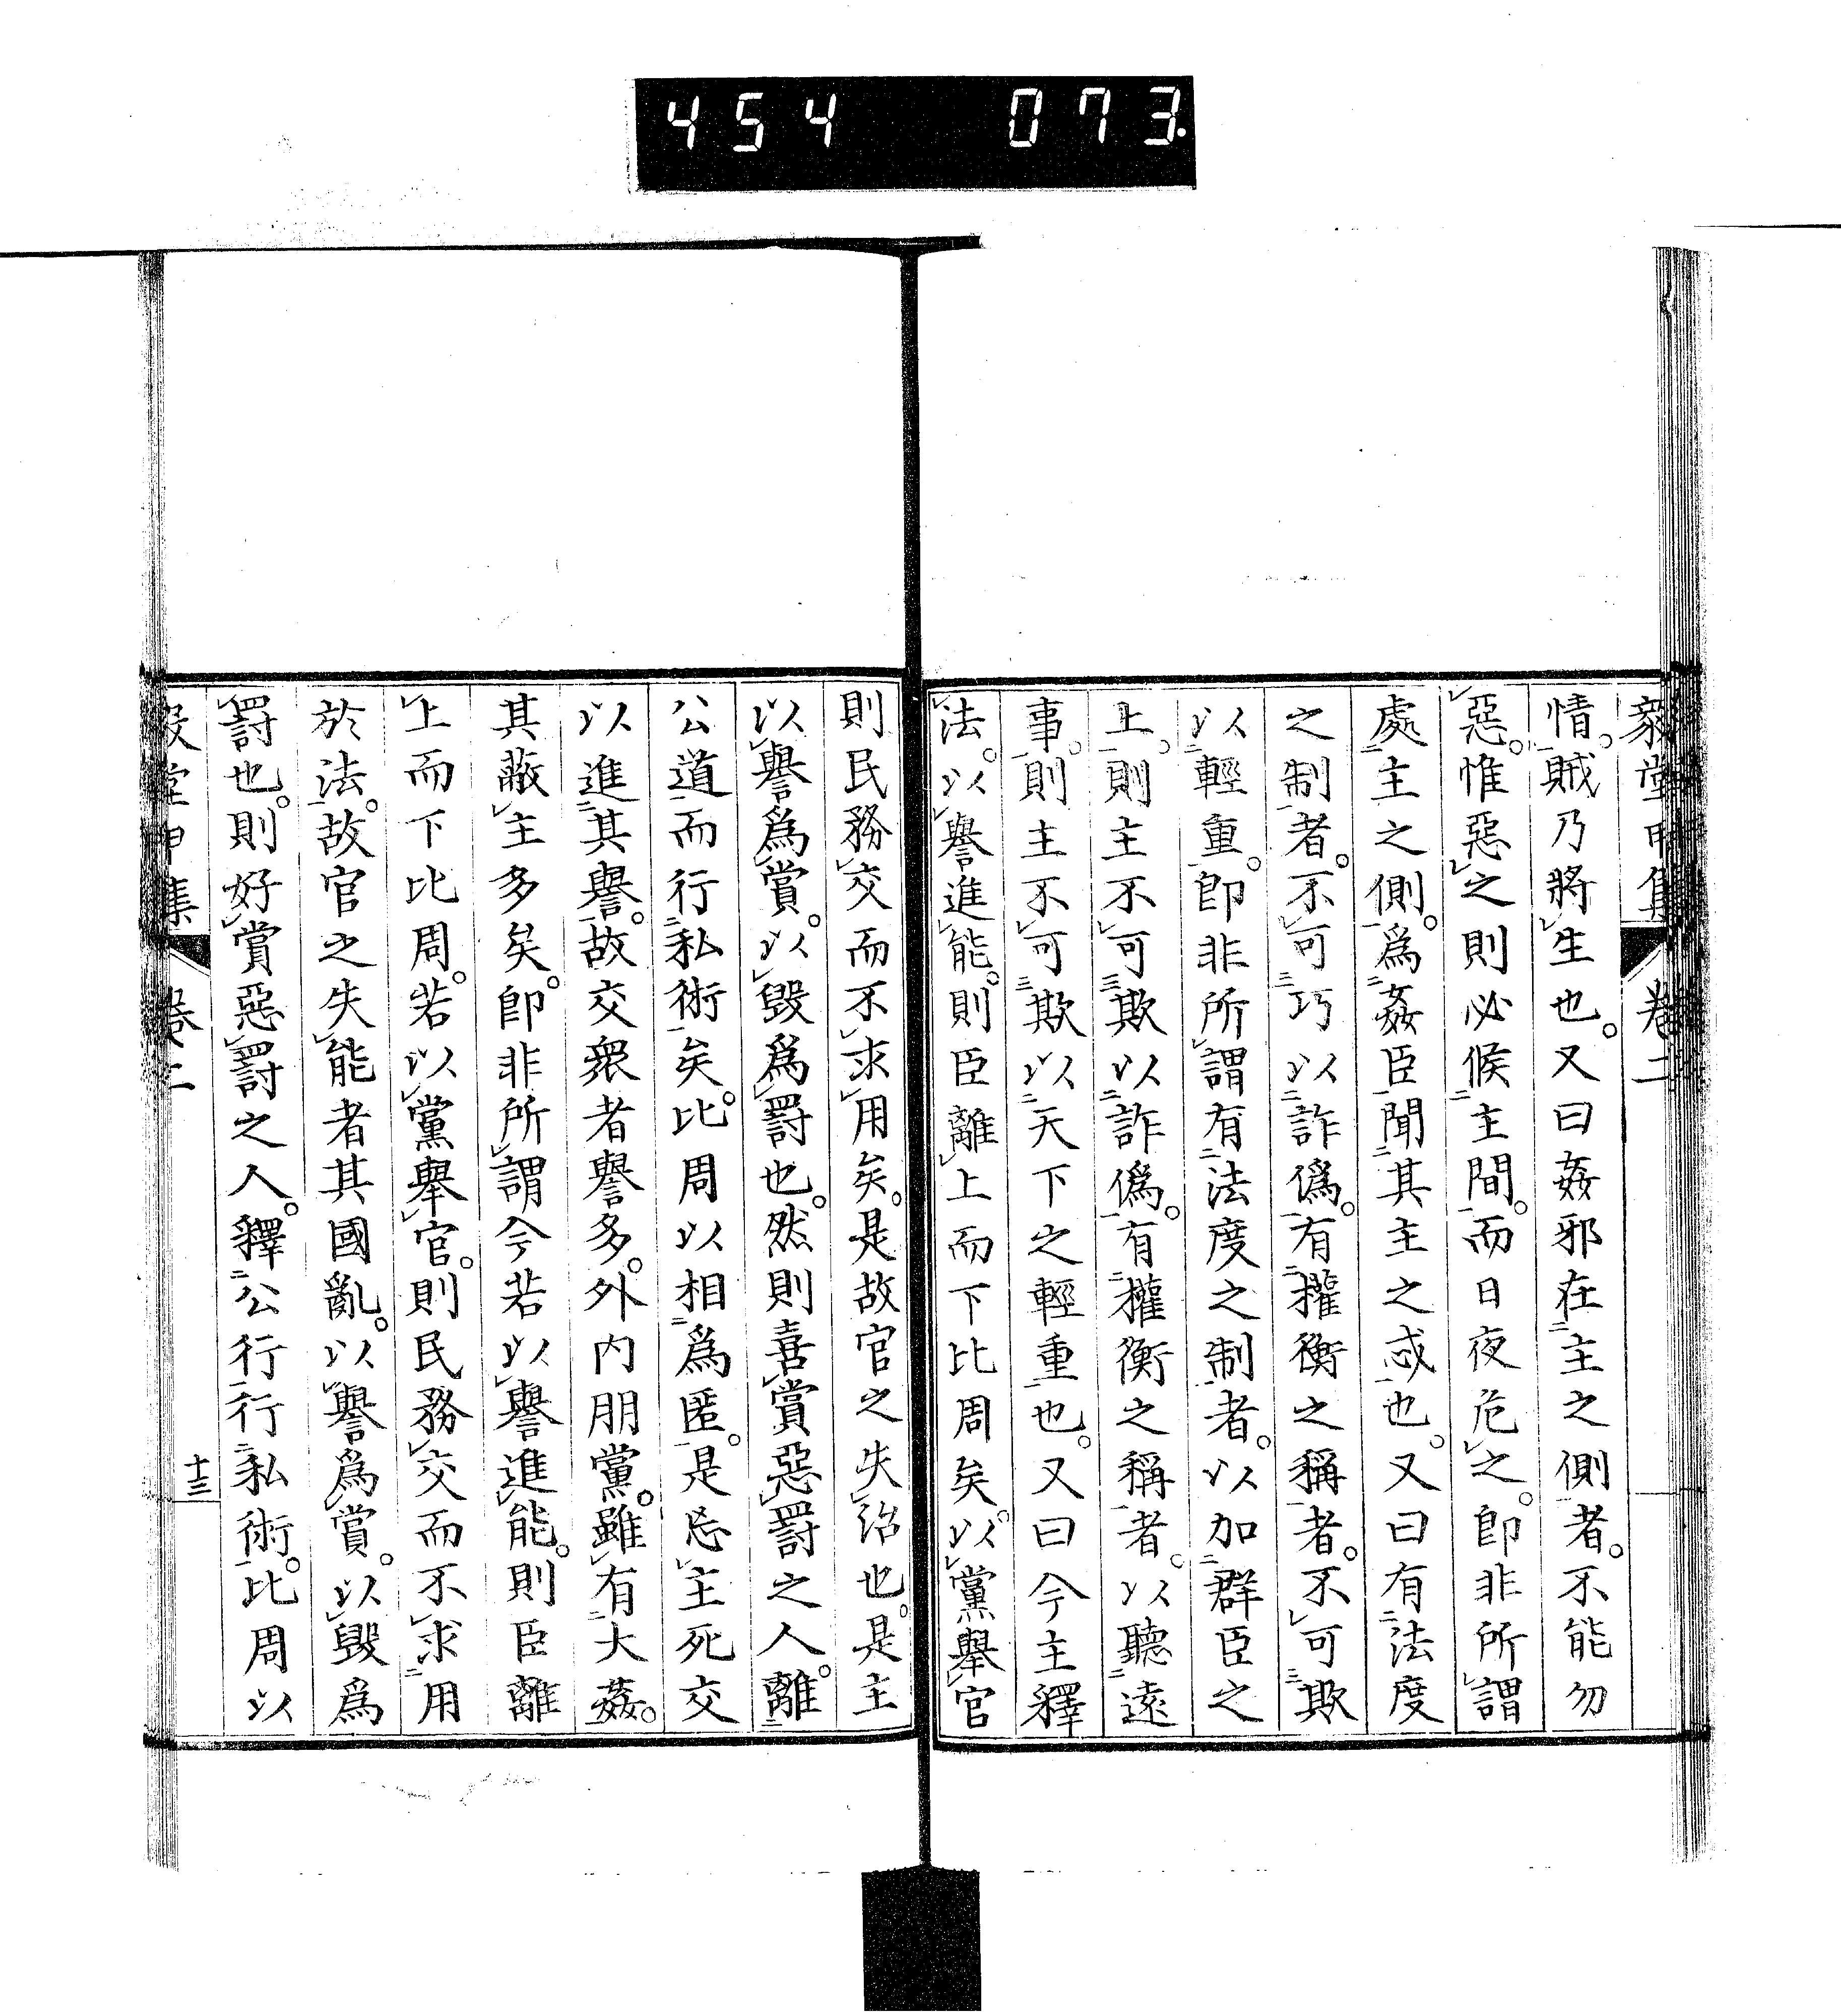 454 073.
情。賊乃將生也。又曰姦邪在主之側者。不能勿
惡。惟惡之則必候主間。而日夜危之。卽非所謂
處主之側。爲姦臣聞其主之忒也。又曰有法度
之制者。不可巧以詐僞。有權衡之稱者。不可欺
以輕重。卽非所謂有法度之制者。以加群臣之
上。則主不可欺以詐僞。有權衡之稱者。以聽遠
事。則主不可欺以天下之輕重也。又曰今主釋
法。以譽進能。則臣離上而下比周矣。以黨舉官
則民務交而不求用矣。是故官之失治也。是主
以譽爲賞。以毀爲罰也。然則喜賞惡罰之人。離
公道而行私術矣。比周以相爲匿。是忘主死交
以進其譽。故交衆者譽多。外內朋黨。雖有大姦。
其蔽主多矣。卽非所謂今若以譽進能。則臣離
上而下比周。若以黨舉官。則民務交而不求用
於法。故官之失能者其國亂。以譽爲賞。以毀爲
罰也。則好賞惡罰之人。釋公行行私術。比周以
卷二
十三